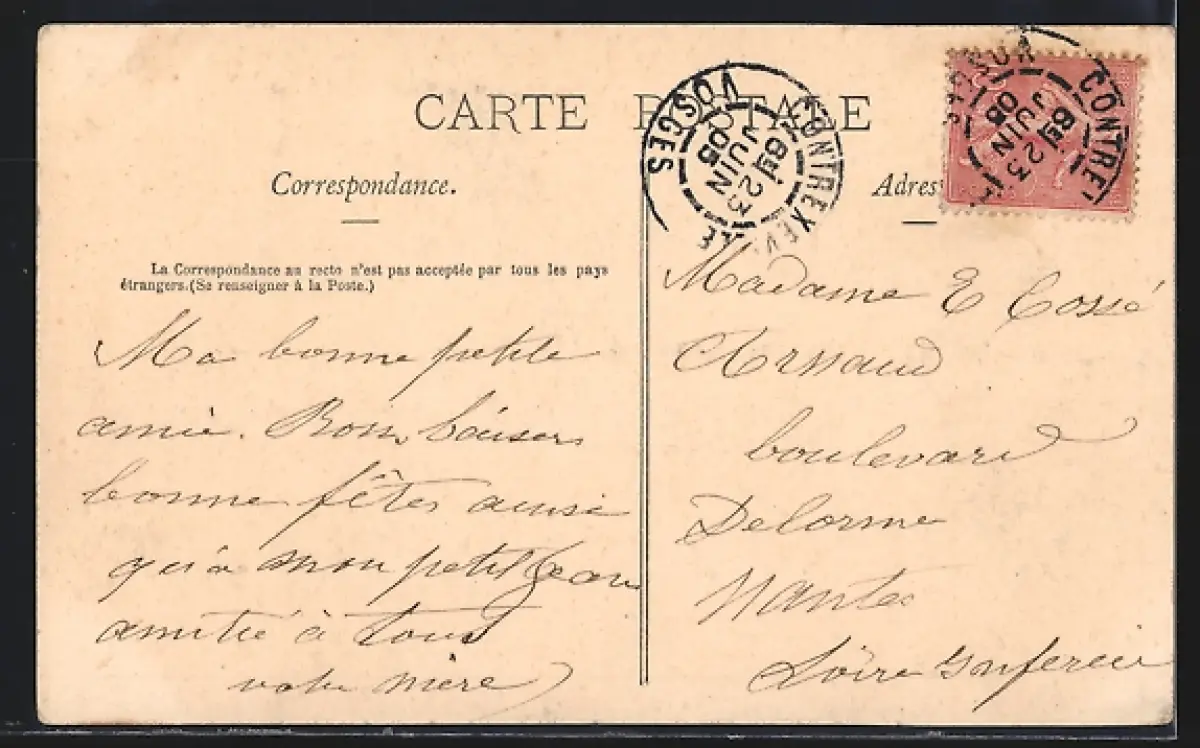 CARTE POSTALE
Correspondance.
La Correspondance au recto n'est pas acceptée par tous les pays
étrangers.(Se renseigner à la Poste.)
Ma bonne petite
amie. Bons baisers
bonne fêtes ainsi
qu'a mon petit Jean
amitié à tous
votre mère
CONTREXEVILLE
6E 23
JUIN
05
VOSGES
CONTRE
6E 23
JUIN
05
VOSGES
Adres
Madame E Cossé
Arnaud
boulevard
Delorme
Nantes
Loire Inferieu